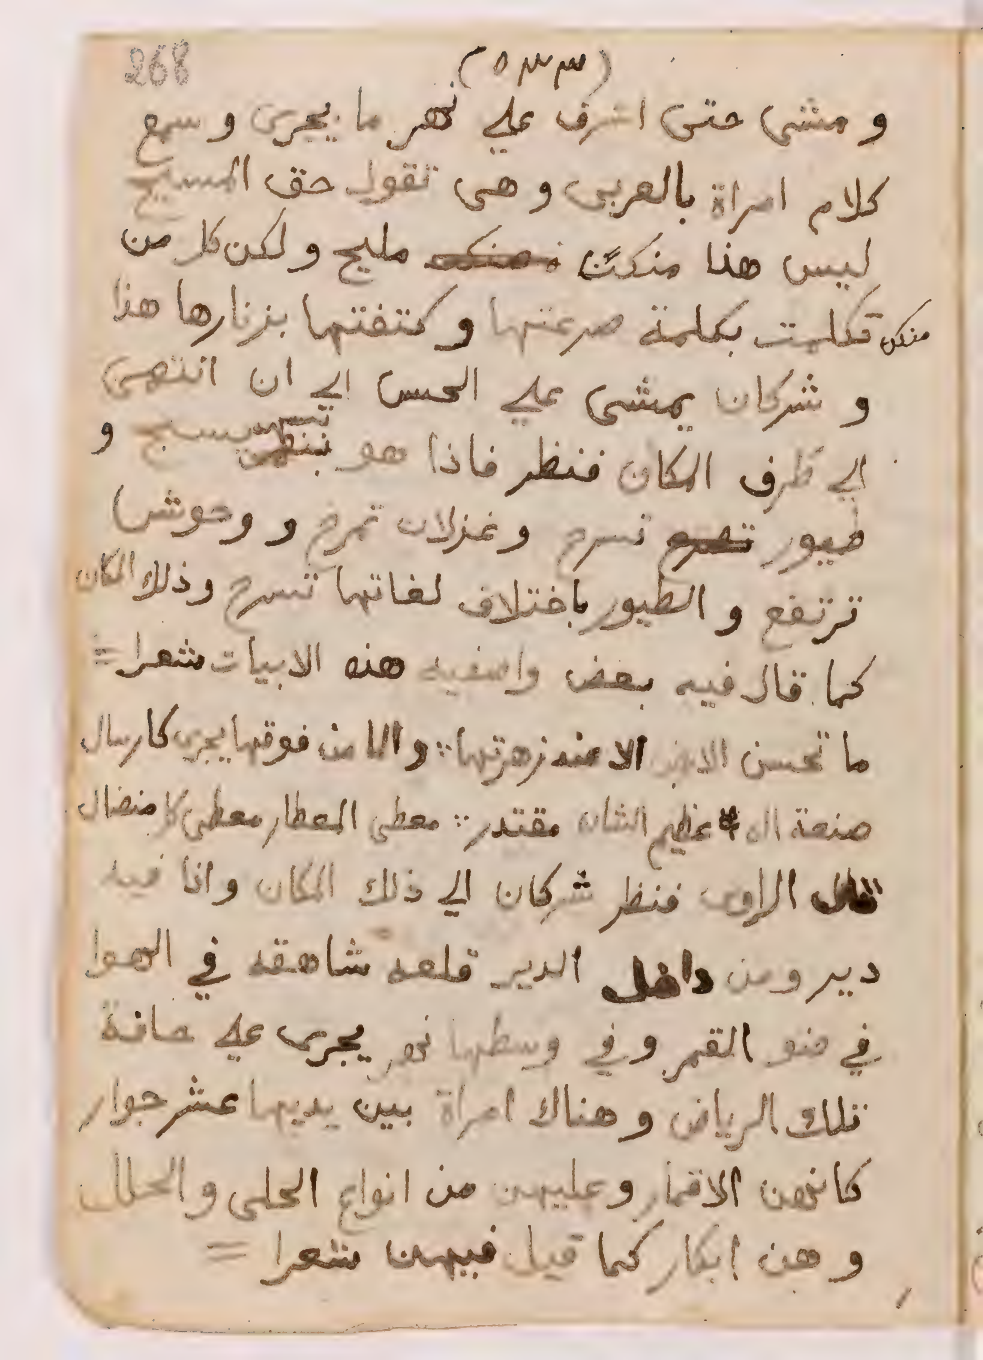 268
(٥٣٣)
و مشى حتى اشرف علي نهر ما يجرى و سمع
كلام امراة بالعربى و هى تقول حق المسيح
ليس هذا منكن مليح و لكن كل من
منكن تكلمت بكلمة صرعتها و كتفتها بزنارها هذا
و شركان يمشى علي الحس الي ان انتهى
الي طرف المكان فنظر فاذا هو بنهر يسيح و
طيور تسرح و غزلان تمرح و وحوش
ترتفع و الطيور باختلاف لغاتها تسرح وذلك المكان
كما قال فيه بعض واصفيه هذه الابيات شعرا =
ما تحسن الارض الا عند زهرتها :: والما من فوقها يجرى كارسال
صنعة اله عظيم الشان مقتدر :: معطى العطار معطى كل منضال
قال الراوى فنظر شركان الي ذلك المكان واذا فيه
دير ومن داخل الدير قلعه شاهقه في الهوا
في ضو القمر و في وسطها نهر يجرى علي حافة
تلك الرياض و هناك امراة بين يديها عشر جوار
كانهن الاقمار و عليهن من انواع الحلى و الحلل
و هن ابكار كما قيل فيهن شعرا =